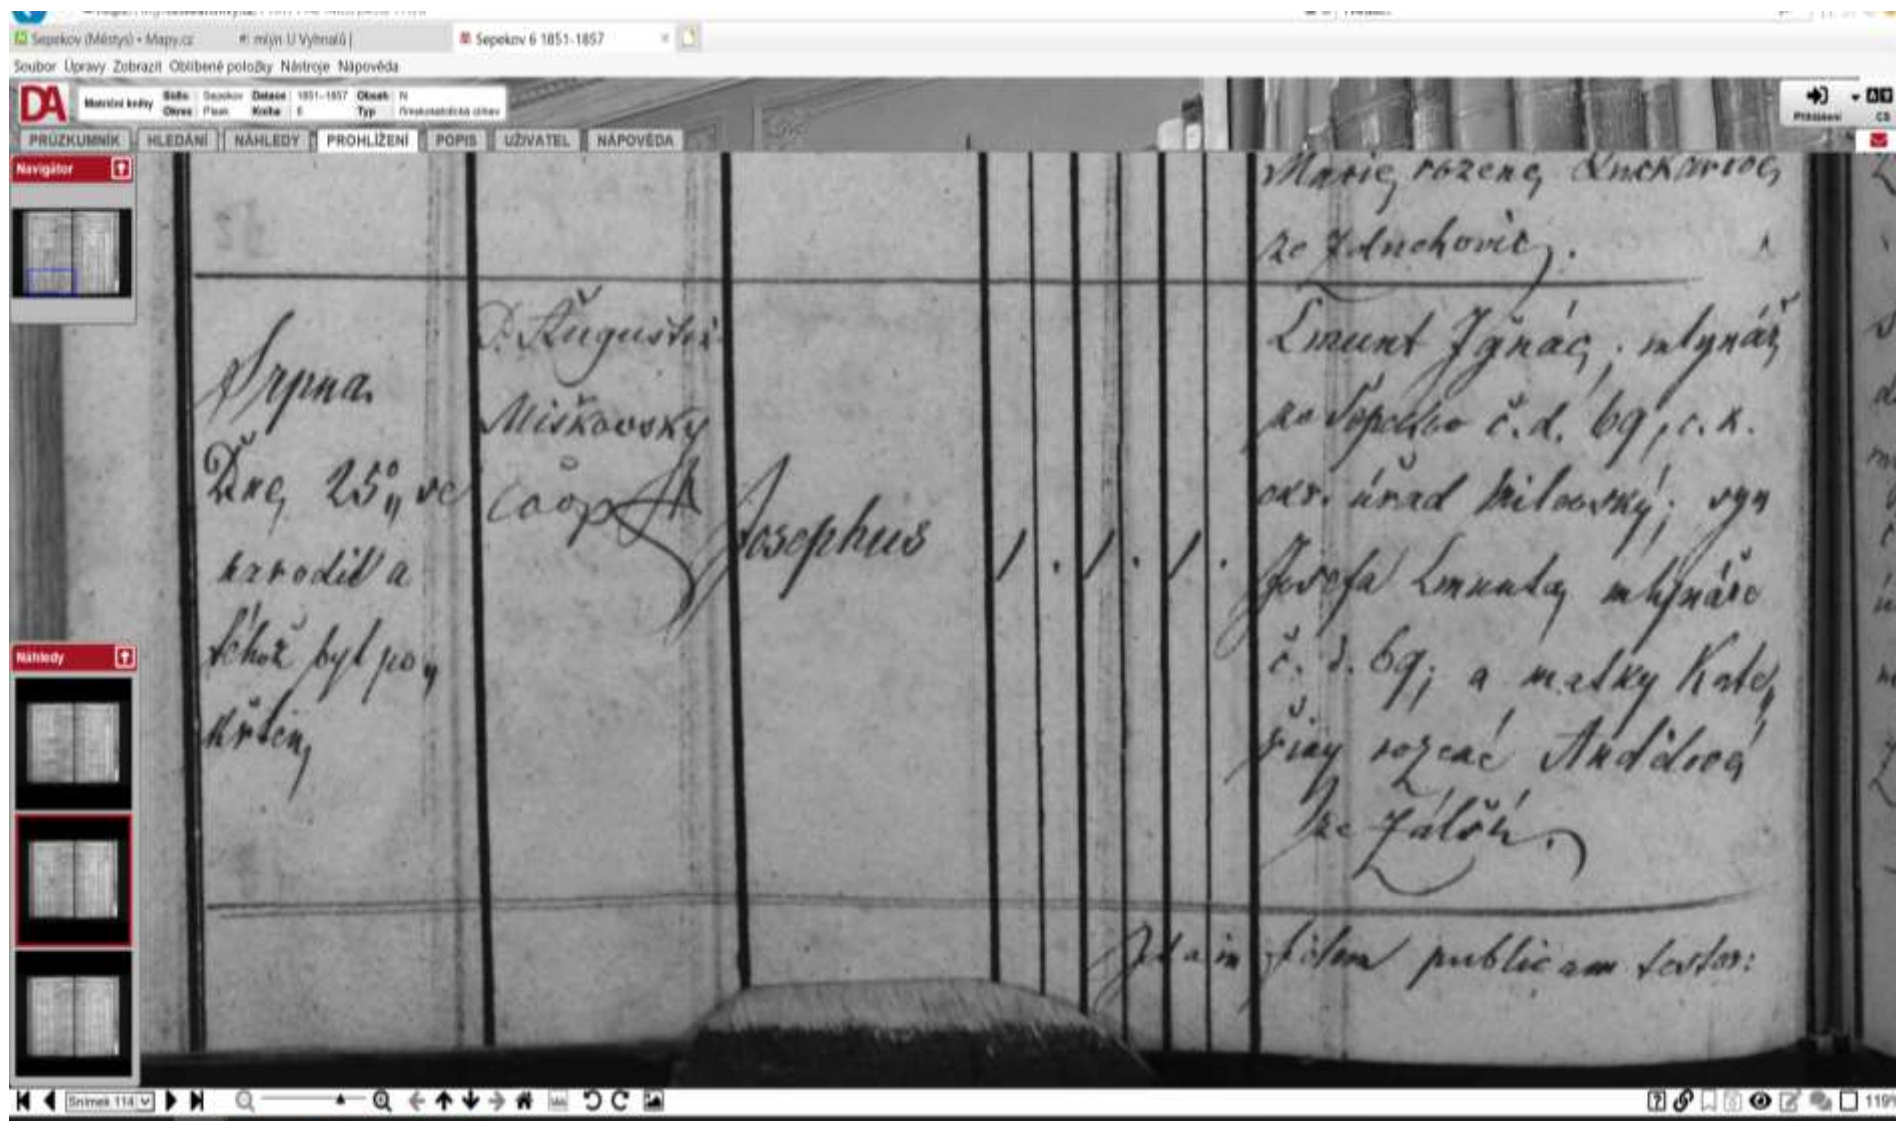 Sepekov (Městys) • Mapy.cz
mlýn U Vyhnalů |
Sepekov 6 1851-1857
Soubor Úpravy Zobrazit Oblíbené položky Nástroje Nápověda
DA
Matriční knihy Sídlo Sepekov Datace 1851-1857 Obsah N
Okres Písek Kniha 6 Typ římskokatolická církev
Přihlášení
CS
PRŮZKUMNÍK HLEDÁNÍ NÁHLEDY PROHLÍŽENÍ POPIS UŽIVATEL NÁPOVĚDA
Navigátor
Náhledy
Marie, rozené,
ze Zduchovic,.
Srpna
Dne, 25º„ se
narodil a
téhož byl po„
křtěn,
P. Augustin
Miškovsky
coop
Josephus
1. 1. 1.
Lmunt Ignác, mlynář,
na Sepekov č. d. 69, c. k.
okr. úřad Milevský; syn
Josefa Lmunta, mlynáře
č. d. 69; a matky Kate„
řiny rozené Andělová
ze Zálší.
Ita in fidem publicam testor:
Snímek 114
119%